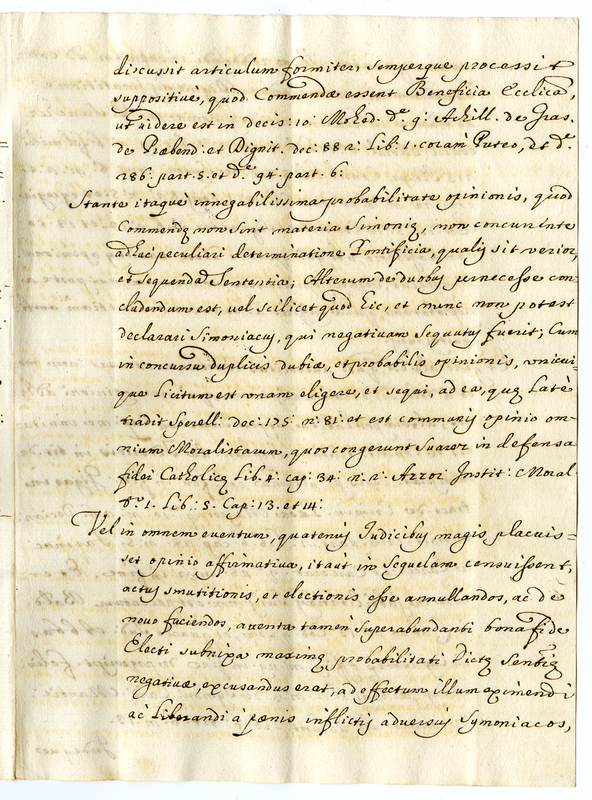 discussit articulum formiter, semperque processit
suppositivè, quod Commendæ essent Beneficia Ecclica,
ut videre est in decis: 10: Mohed. dᵒ. 9: Achill. de Gras.
de Præbend: et Dignit. dec: 88 2: Lib: 1. coràm Puteo, et dᵒ.
286: part. 5. et dᵒ 94. part. 6:
Stante itaquè innegabilissima probabilitate opinionis, quod
Commendę non sint materia Simonię, non concurrente
adhuc peculiari determinatione Pontificia, qualis sit verior,
et sequenda Sententia; Alterum de duobus necesse con-
cludendum est, vel scilicet quod hic, et nunc non potest
declarari Simoniacus, qui negativam sequutus fuerit; Cum
in concursu duplicis dubiæ, et probabilis opinionis, unicui-
que Licitum est unam eligere, et sequi, ad ea, quę Latè
tradit Sperell: dec: 175: n: 81: et est communis opinio om-
nium Moralistarum, quos congerunt Suarez in defensa
fidei Catholicę Lib. 4: cap: 34: n: 2: Azzor Instit: Moral.
1. Lib: 5. Cap: 13. et 14:
Vel in omnem eventum, quatenus Judicibus magis placuis=
set opinio affirmativa, ita ut in sequelam censuissent,
actus mutitionis, et electionis esse annullandos, ac de
novo faciendos, attenta tamen superabundanti bona fide
Electi subnixa maximę probabilitati Dictę Sentię
negativæ, excusandus erat, ad effectum illum eximendi
ac Liberandi à pænis inflictis adversus Symoniacos,